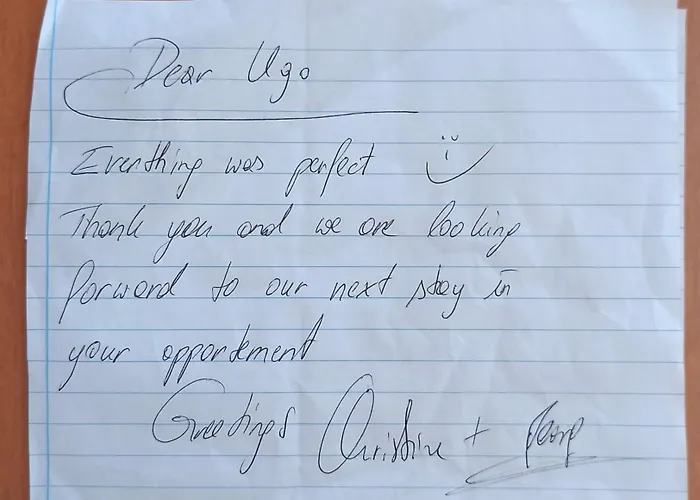 Dear Ugo
Everthing was perfect
Thank you and we are looking
forward to our next stay in
your appartement
Greetings Christine +